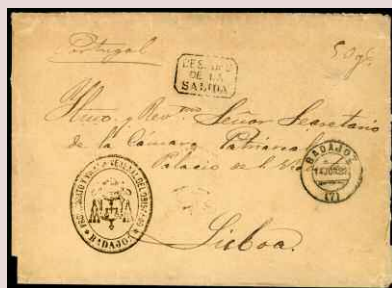 Portugal
50 gr
DESPUES
DE LA
SALIDA
Iltmo. y Revmo Señor Secretario
de la Cámara Patriarcal
Palacio de S. Vi
BADAJOZ
(7)
BADAJOZ
Lisboa.